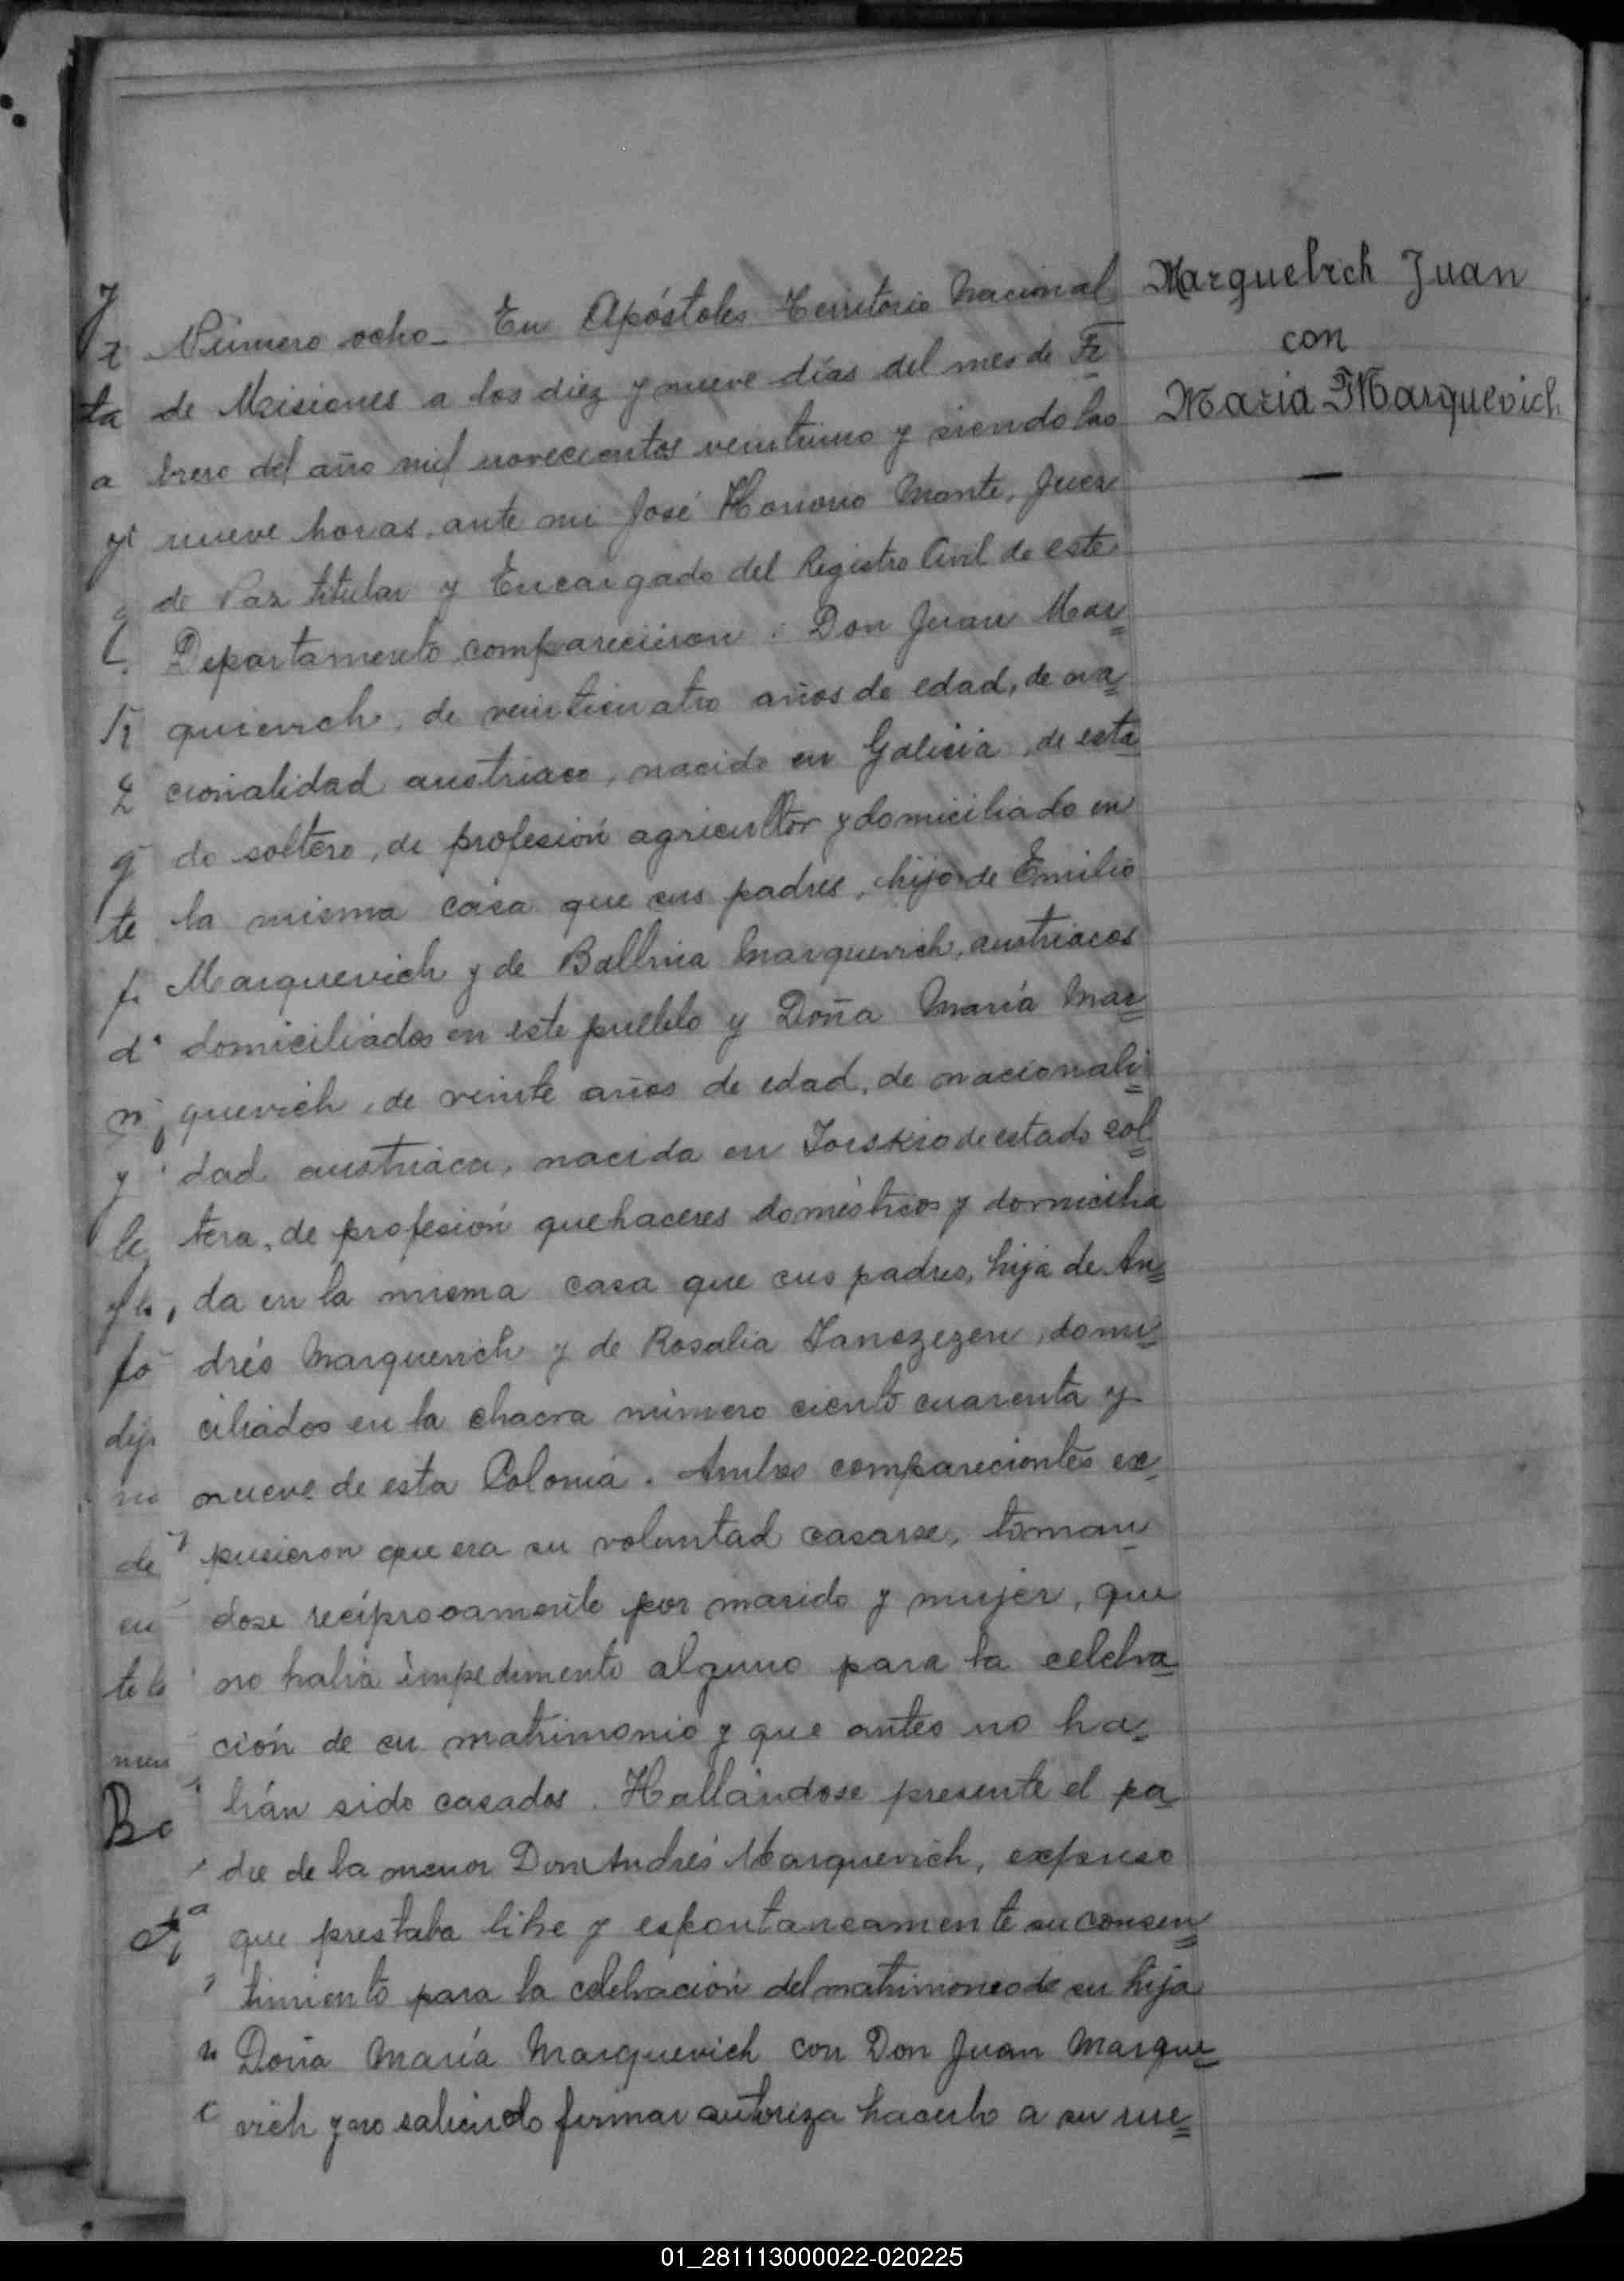 Marquebich Juan
con
Maria Marquevich
Número ocho_ En Apóstoles Territorio Nacional
de Misiones a los diez y nueve días del mes de Fe
brero del año mil novecientos veintiuno y siendo las
nueve horas, ante mi José Honorio Monte, Juez
de Paz titular y Encargado del Registro Civil de este
Departamento, comparecieron: Don Juan Mar
quievich, de veinticuatro años de edad, de na
cionalidad austriaco, nacido en Galicia, de esta
do soltero, de profesión agricultor y domiciliado en
la misma casa que sus padres, hijo de Emilio
Marquevich y de Marquevich, austriacos
domiciliados en este pueblo y Doña María Mar
quevich, de veinte años de edad, de nacionali
dad austriaca, nacida en de estado sol
tera, de profesión quehaceres domésticos y domicilia
da en la misma casa que sus padres, hija de An
drés Marquevich y de Rosalia domi
ciliados en la chacra número ciento cuarenta y
nueve de esta Colonia. Ambos comparecientes ex
pusieron que era su voluntad casarse, toman
dose recíprocamente por marido y mujer, que
no había impedimento alguno para la celebra
ción de su matrimonio y que antes no ha
bían sido casados. Hallándose presente el pa
dre de la menor Don Andrés Marquevich, expuso
que prestaba libre y espontaneamente su consen
timiento para la celebración del matrimonio de su hija
Doña María Marquevich con Don Juan Marque
vich y no sabiendo firmar autoriza hacerlo a su rue
01_281113000022-020225